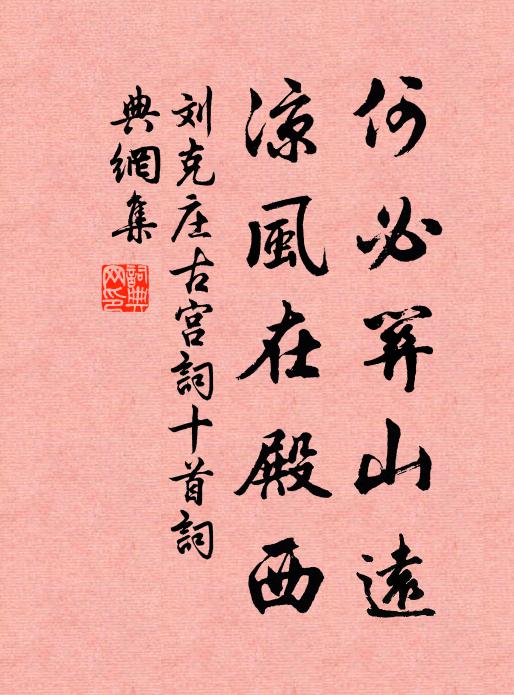 何必関山遠
涼風在殿西
刘克庄古宫詞十首詞
典網集
詞典
网印